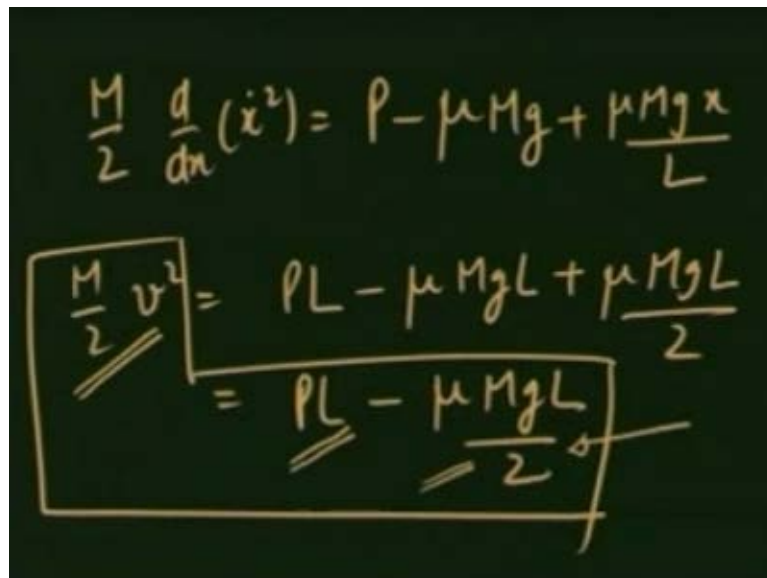 M/2 d/dx (ẋ²) = P - μMg + μMgx/L
M/2 v² = PL - μMgL + μMgL/2
= PL - μMgL/2